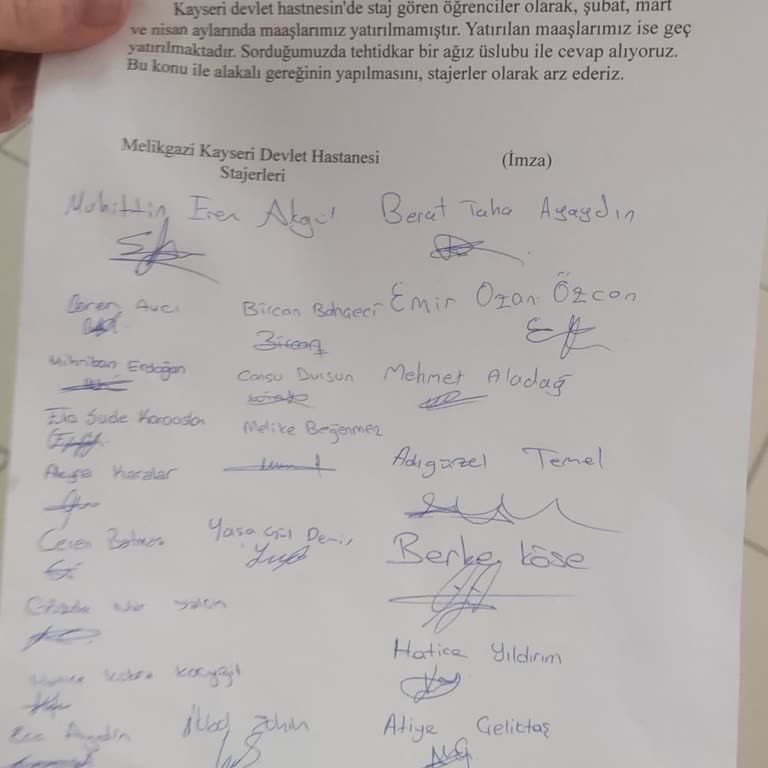 Kayseri devlet hastnesin'de staj gören öğrenciler olarak, şubat, mart
ve nisan aylarında maaşlarımız yatırılmamıştır. Yatırılan maaşlarımız ise geç
yatırılmaktadır. Sorduğumuzda tehtidkar bir ağız üslubu ile cevap alıyoruz.
Bu konu ile alakalı gereğinin yapılmasını, stajerler olarak arz ederiz.
Melikgazi Kayseri Devlet Hastanesi (İmza)
Stajerleri
Muhittin Eren Akgül Berat Taha Ayaydın
Ceren Avcı Bircan Bahçeci Emir Ozan Özcan
Bircan
Mihriban Erdoğan Cansu Dursun Mehmet Aladağ
Sude Karaaslan Melike Beğenmez
Karalar Adıgüzel Temel
Ceren Yasa Gül Demir Berke Köse
Nur Yalçın
Hatice Yıldırım
Kübra Koçyiğit
Ece Aydın İkbal Atiye Geliktaş